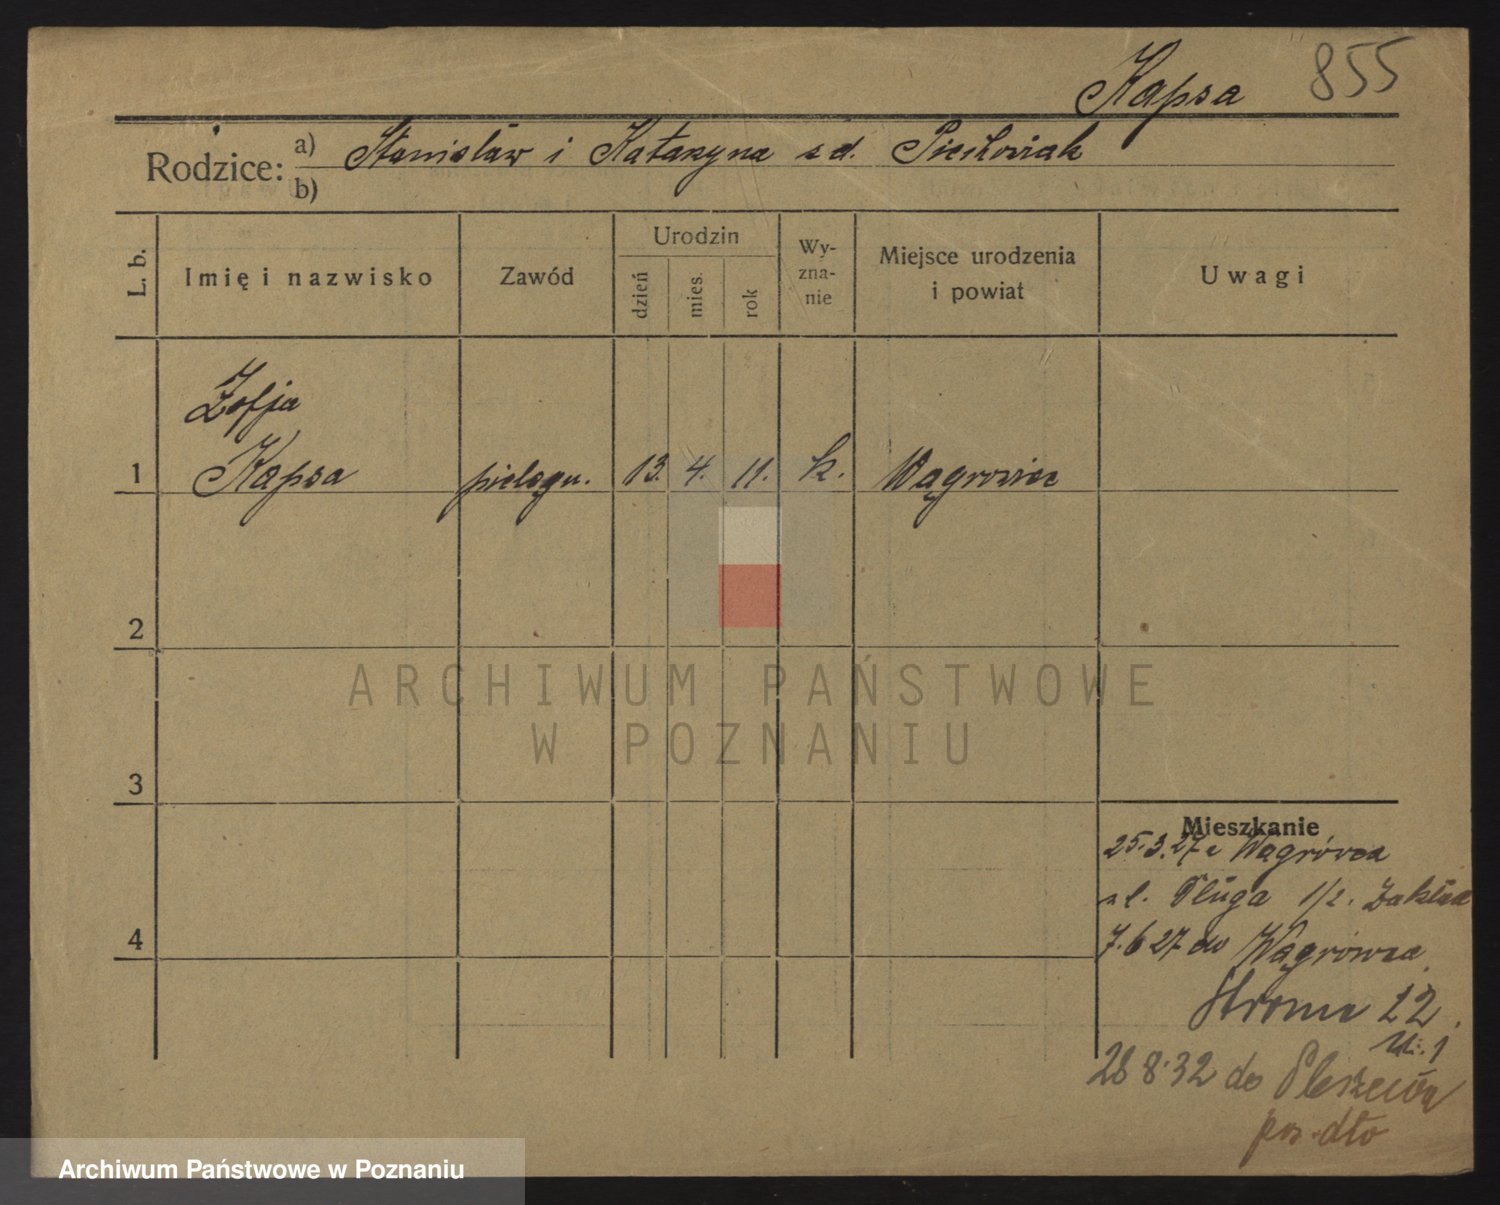 Kapsa 855
Rodzice: a) Stanisław i Katarzyna z d.
b)
L. b. Imię i nazwisko Zawód Urodzin dzień mies. rok Wy-zna-nie Miejsce urodzenia i powiat Uwagi
Zofja
1 Kapsa pielęgn. 13. 4. 11. k. Wągrowiec
2
ARCHIWUM PAŃSTWOWE
W POZNANIU
3
Mieszkanie
25.3.27 z Wągrówca
ul. Długa 1/2. Zakład
4 7.6 27 do Wągrówca
Stroma 22
28 8.32 do Pleszewa
Archiwum Państwowe w Poznaniu